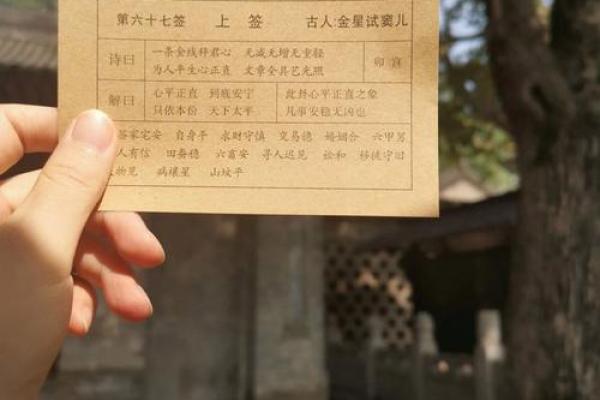 第六十七签 上 签 古人:金星试窦儿
诗曰 一条金线秤君心 无减无增无重轻 卯宫
为人平生心正直 文章全具艺光照
解曰 心平正直 到底安宁 此卦心平正直之象
只依本份 天下太平 凡事安稳无凶也
签家宅安 自身平 求财守慎 交易稳 婚姻合 六甲男
人有信 田蚕稳 六畜安 寻人迟见 讼和 移徙守旧
物见 病禳星 山坟平